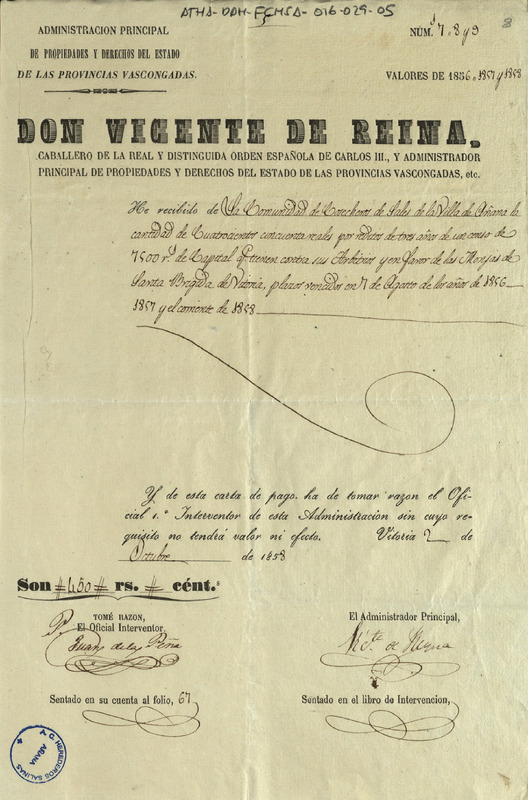 ATHA-DAH-FCHSA-016-029-05
8
ADMINISTRACION PRINCIPAL
DE PROPIEDADES Y DERECHOS DEL ESTADO
DE LAS PROVINCIAS VASCONGADAS.
NÚM. 7.8y9
VALORES DE 1856, 1857 y 1858
DON VICENTE DE REINA,
CABALLERO DE LA REAL Y DISTINGUIDA ÓRDEN ESPAÑOLA DE CARLOS III., Y ADMINISTRADOR
PRINCIPAL DE PROPIEDADES Y DERECHOS DEL ESTADO DE LAS PROVINCIAS VASCONGADAS, etc.
He recibido de La Comunidad de Cosecheros de Sales de la Villa de Añana la
cantidad de Cuatrocientos cincuenta reales por reditos de tres años de un censo de
7500 rs. de Capital q. tienen contra sus y en favor de las Monjas de
Santa Brigida de Vitoria, plazos vencidos en 7 de Agosto de los años de 1856
1857 y el corriente de 1858
Y de esta carta de pago ha de tomar razon el Ofi-
cial 1.º Interventor de esta Administracion sin cuyo re-
quisito no tendrá valor ni efecto. Vitoria 2 de
Octubre de 1858
Son # 450 # rs. # cént.s
TOMÉ RAZON,
El Oficial Interventor,
P.
Juan de la Peña
El Administrador Principal,
Victe. de Reyna
Sentado en su cuenta al folio, 67
Sentado en el libro de Intervencion,
A. C. HEREDEROS SALINAS
AÑANA